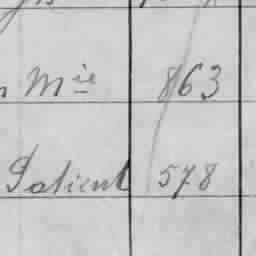 Mie 863
Patient 578